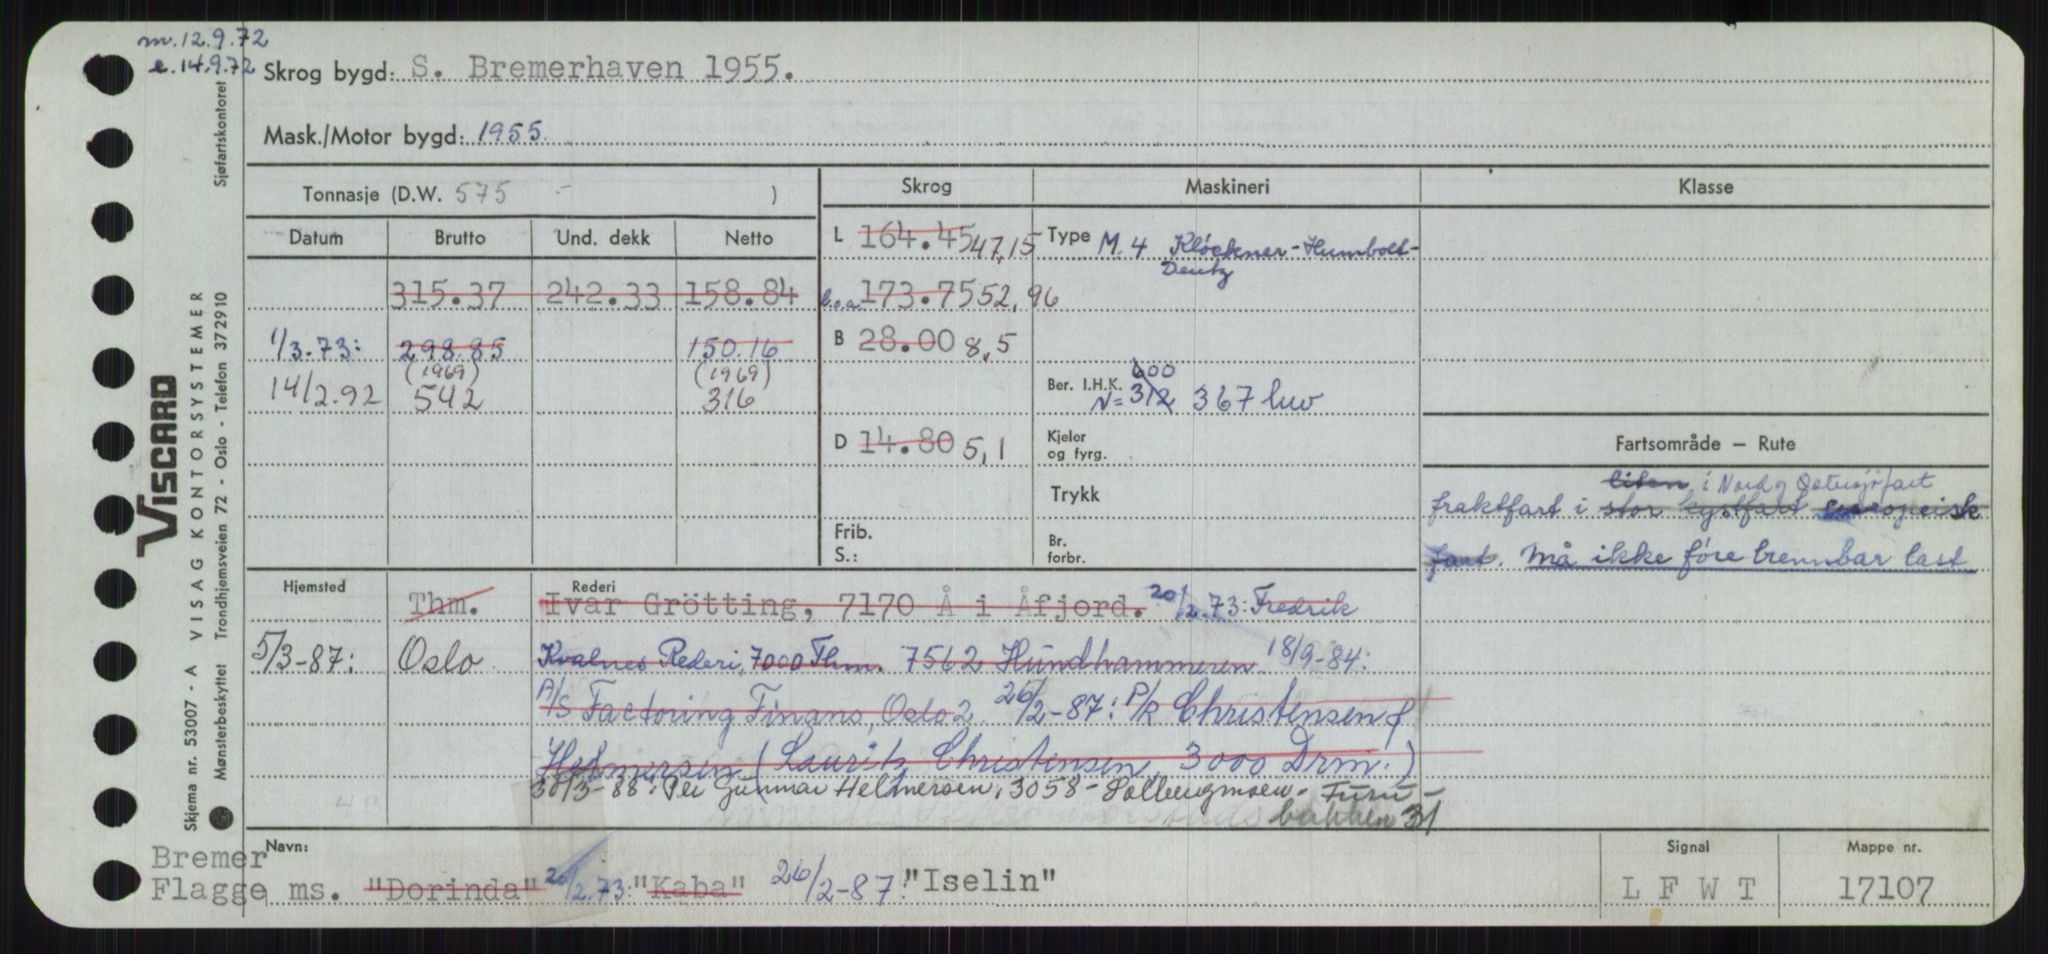 m. 12.9.72
e. 14.9.72
Skrog bygd: S. Bremerhaven 1955.
Mask./Motor bygd: 1955.
Tonnasje (D.W. 575 - )
Skrog Maskineri Klasse
Datum Brutto Und. dekk Netto
L 164.45 47,15 Type M. 4 Klöckner-Humbolt-
Deutz
315.37 242.33 158.84 l.o.a. 173.75 52,96
1/3.73: 298.85 150.16 B 28.00 8,5
(1969) (1969)
14/2.92 542 316
600
Ber. I.H.K. N= 312 367 hw
D 14.80 5,1 Kjeler
og fyrg.
Fartsområde – Rute
Trykk
liten i Nord og Östersjöfart
fraktfart i stor kystfart europeisk
fart. Må ikke före brennbar last
Frib.
S.:
Br.
forbr.
Hjemsted Rederi
Thm. Ivar Grötting, 7170 Å i Åfjord. 20/2.73: Fredrik
5/3-87: Oslo Kvalnes Rederi, 7000 Thm. 7562 Hundhammeren 18/9-84:
A/S Factoring Finans, Oslo 2 26/2-87: P/R Christensen &
Helmersen (Lauritz Christensen, 3000 Drm.)
30/3-88: Per Gunnar Helmersen, 3058 - Solbergmoen - Furu-
bakken 31
Navn: Signal Mappe nr.
Bremer
Flagge ms. "Dorinda" 20/2.73: "Kaba" 26/2-87: "Iselin" L F W T 17107
VISCARD
Skjema nr. 53007 - A VISAG KONTORSYSTEMER
Mønsterbeskyttet Trondhjemsveien 72 - Oslo - Telefon 372910
Sjøfartskontoret